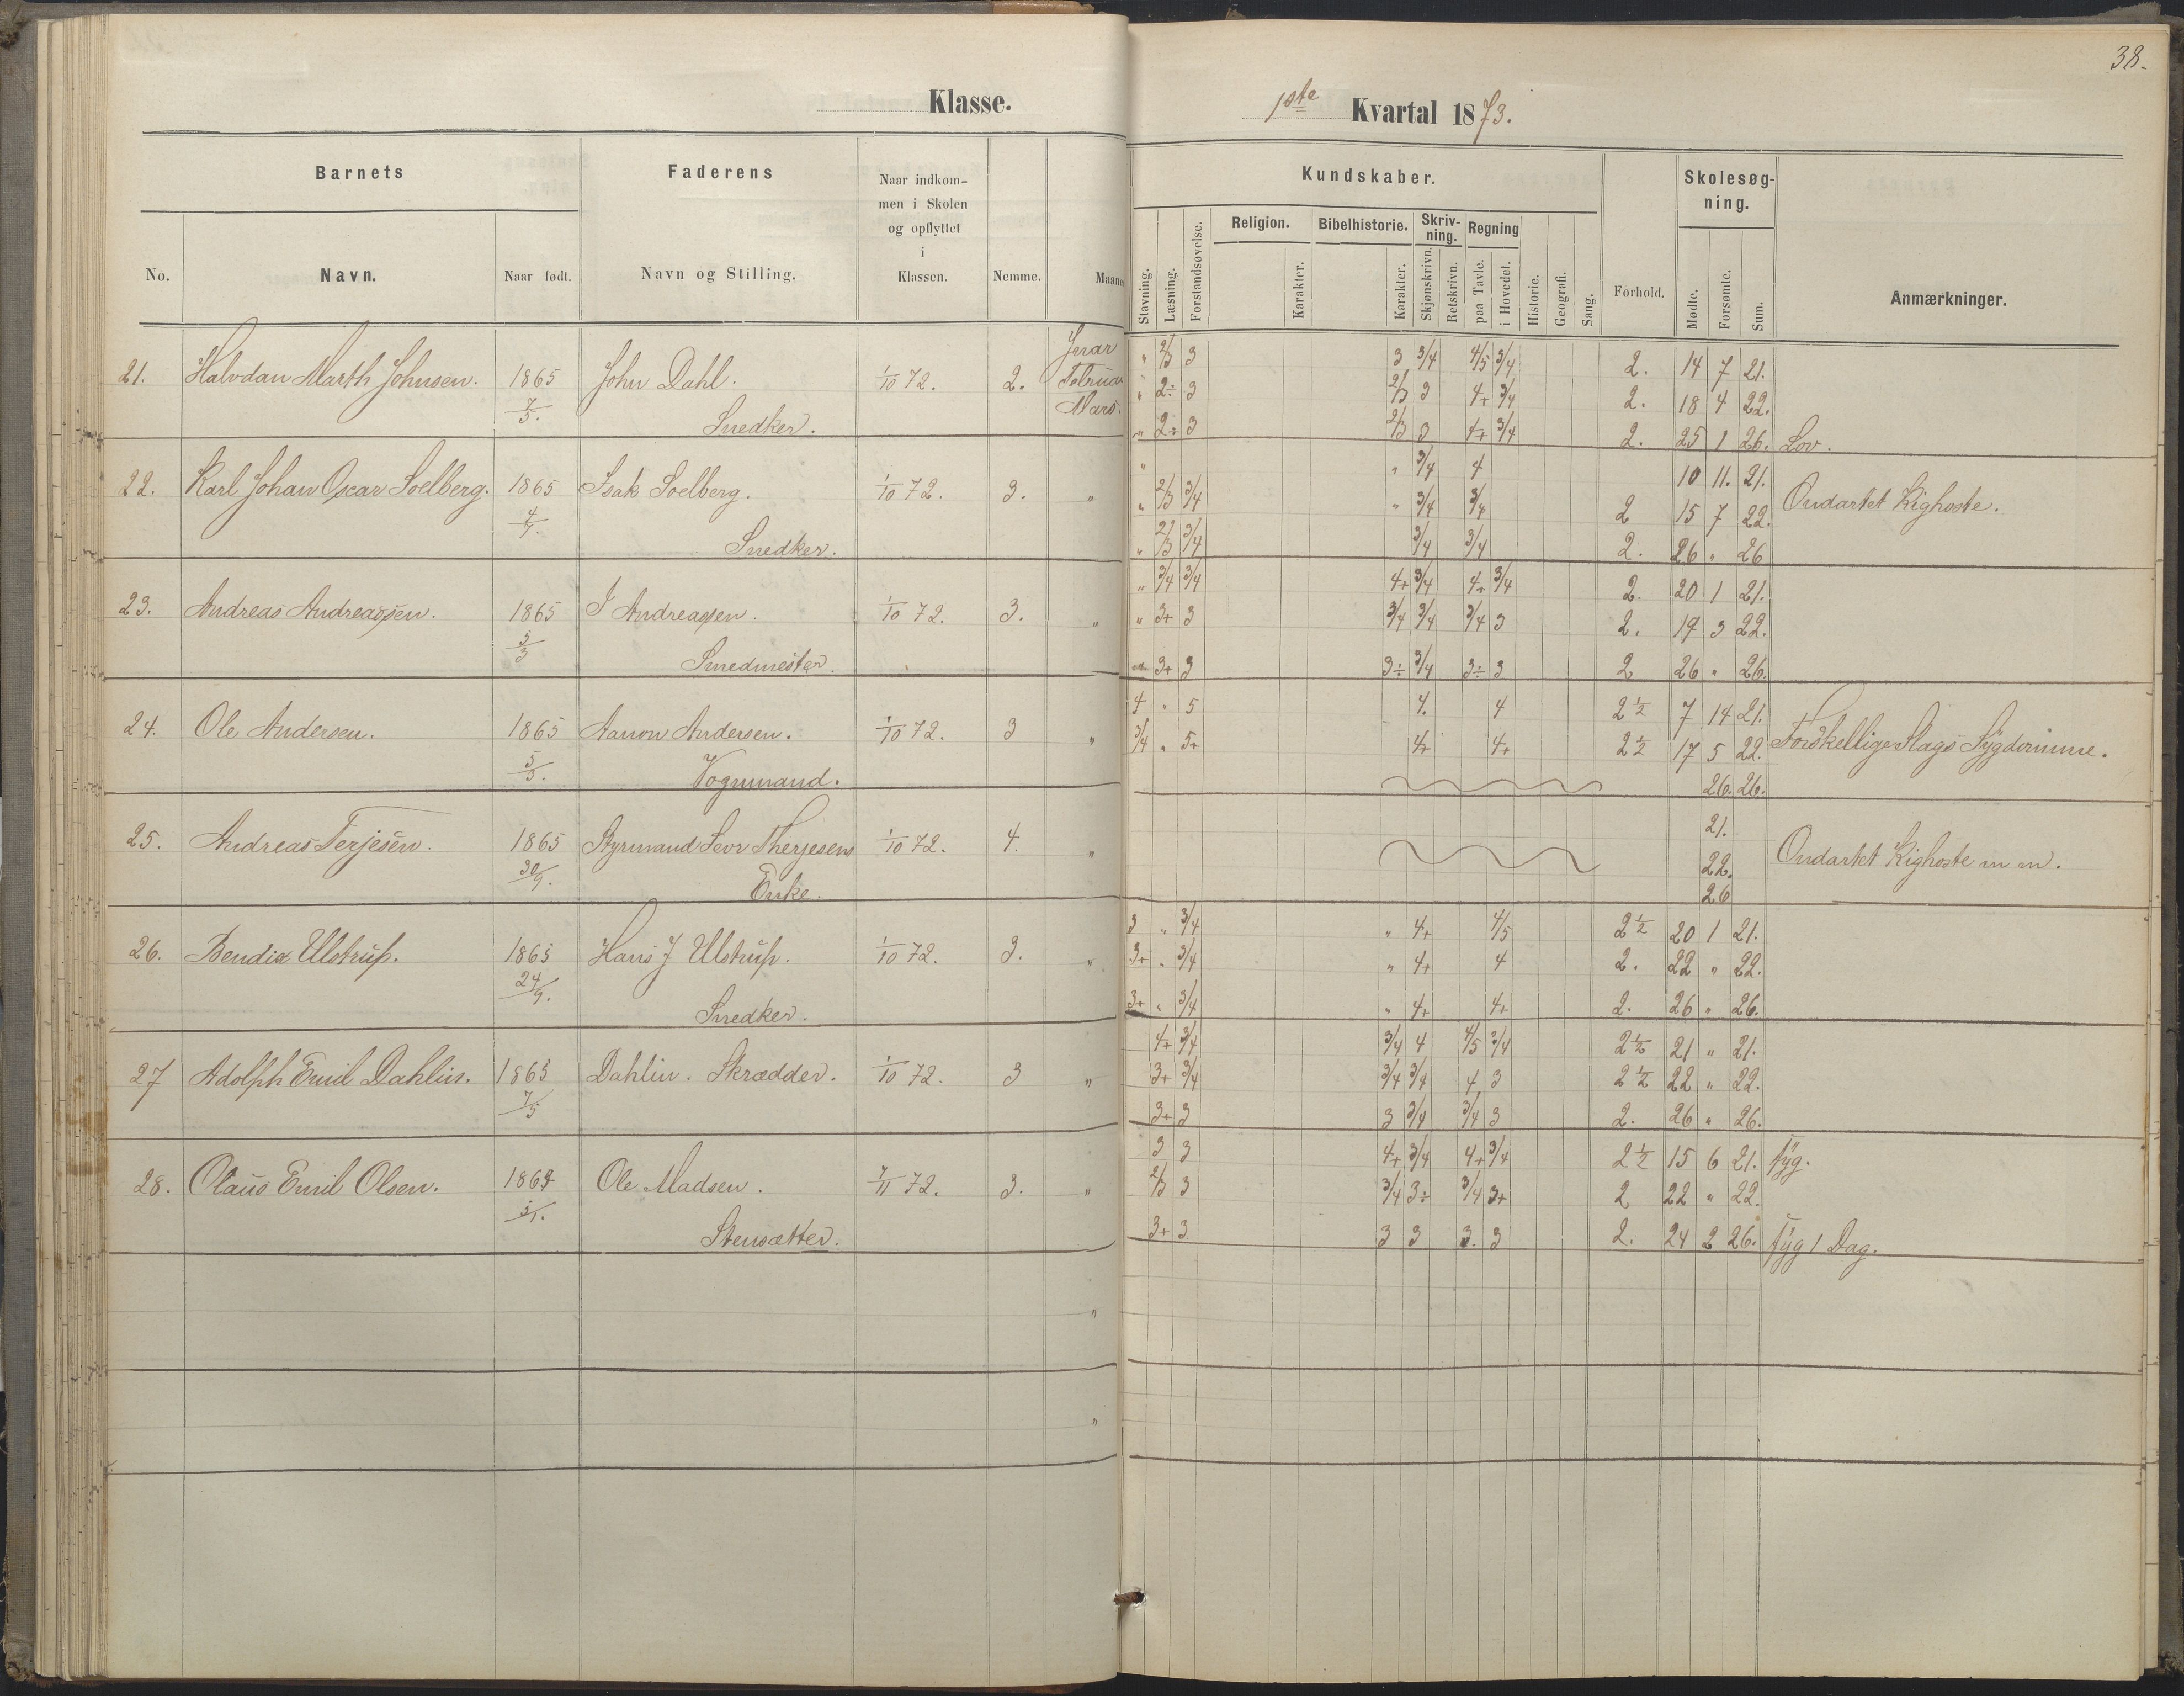 38.
Klasse.
1ste Kvartal 1873.
Barnets
Faderens
Naar indkom-
men i Skolen
og opflyttet
i
Klassen.
No.
Navn.
Naar født.
Navn og Stilling.
Nemme.
Maane
Kundskaber.
Skolesøg-
ning.
Religion.
Bibelhistorie.
Skriv-
ning.
Regning
Stavning.
Læsning.
Forstandsøvelse.
Karakter.
Karakter.
Skjønskrivn.
Retskrivn.
paa Tavle.
i Hovedet.
Historie.
Geografi.
Sang.
Forhold.
Mødte.
Forsømte.
Sum.
Anmærkninger.
21. Halvdan Marth Johnsen. 1865 John Dahl. 1/10 72. 2. Februar
7/5. Snedker. Mars.
" 2/3 3 3 3/4 4/5 3/4 2. 14 7 21.
" 2÷ 3 2/3 3 4+ 3/4 2. 18 4 22.
" 2÷ 3 2/3 3 4+ 3/4 2. 25 1 26. Lov.
22. Karl Johan Oscar Soelberg. 1865 Isak Soelberg. 1/10 72. 3. "
4/7. Snedker.
" " 3/4 4 10 11. 21.
" 2/3 3/4 " 3/4 3/4 2 15 7 22. Ondartet Kighoste.
" 2/3 3/4 3/4 3/4 2. 26 " 26
23. Andreas Andreassen. 1865 I Andreassen. 1/10 72. 3. "
5/3 Smedmester.
" 3/4 3/4 4+ 3/4 4+ 3/4 2. 20 1 21.
" 3+ 3 3/4 3/4 3/4 3 2. 19 3 22.
" 3+ 3 3÷ 3/4 3÷ 3 2 26 " 26.
24. Ole Andersen. 1865 Aanon Andersen. 1/10 72. 3 "
5/3. Vognmand.
4 " 5 4. 4 2 1/2 7 14 21.
3/4 " 5+ 4+ 4+ 2 1/2 17 5 22. Forskellige Slags Sygdomme.
26. 26.
25. Andreas Terjesen. 1865 Styrmand Sevr Therjesens 1/10 72. 4. "
30/9. Enke.
21.
22. Ondartet Kighoste m m.
26
26. Bendix Ulstrup. 1865 Hans J Ulstrup. 1/10 72. 3. "
24/9. Snedker.
3 " 3/4 " 4+ 4/5 2 1/2 20 1 21.
3+ " 3/4 " 4+ 4 2. 22 " 22.
3+ " 3/4 " 4+ 4+ 2. 26 " 26.
27 Adolph Emil Dahlin. 1865 Dahlin. Skrædder. 1/10 72. 3 "
7/5
4+ 3/4 3/4 4 4/5 3/4 2 1/2 21 " 21.
3+ 3/4 3/4 3/4 4 3 2 1/2 22 " 22.
3+ 3 3 3/4 3/4 3 2. 26 " 26.
28. Olaus Emil Olsen. 1864 Ole Madsen. 7/11 72. 3. "
Stensætter.
3 3 4+ 3/4 4+ 3/4 2 1/2 15 6 21. syg.
2/3 3 3/4 3÷ 3/4 3+ 2 22 " 22.
3+ 3 3 3 3. 3 2. 24 2 26. syg 1 Dag.
"
"